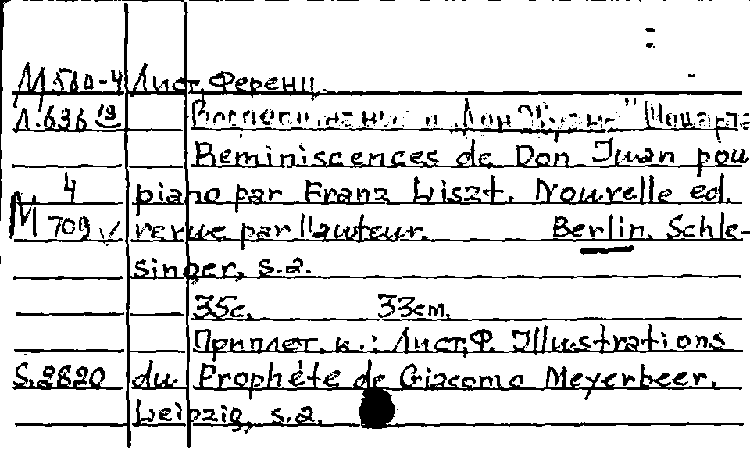 М580-4 Лист, Ференц.
Л.636 Воспоминание о „Дон Жуане" Моцарта
Reminiscences de Don Juan pou
4 piano par Franz Liszt. Nouvelle ed.
М 709 revue par l'auteur. Berlin, Schle-
singer, s.a.
35с. 33cm.
Приплет. к.: Лист, Ф. Illustrations
S.2820 du Prophéte de Giacomo Meyerbeer.
Leipzig, s.a.